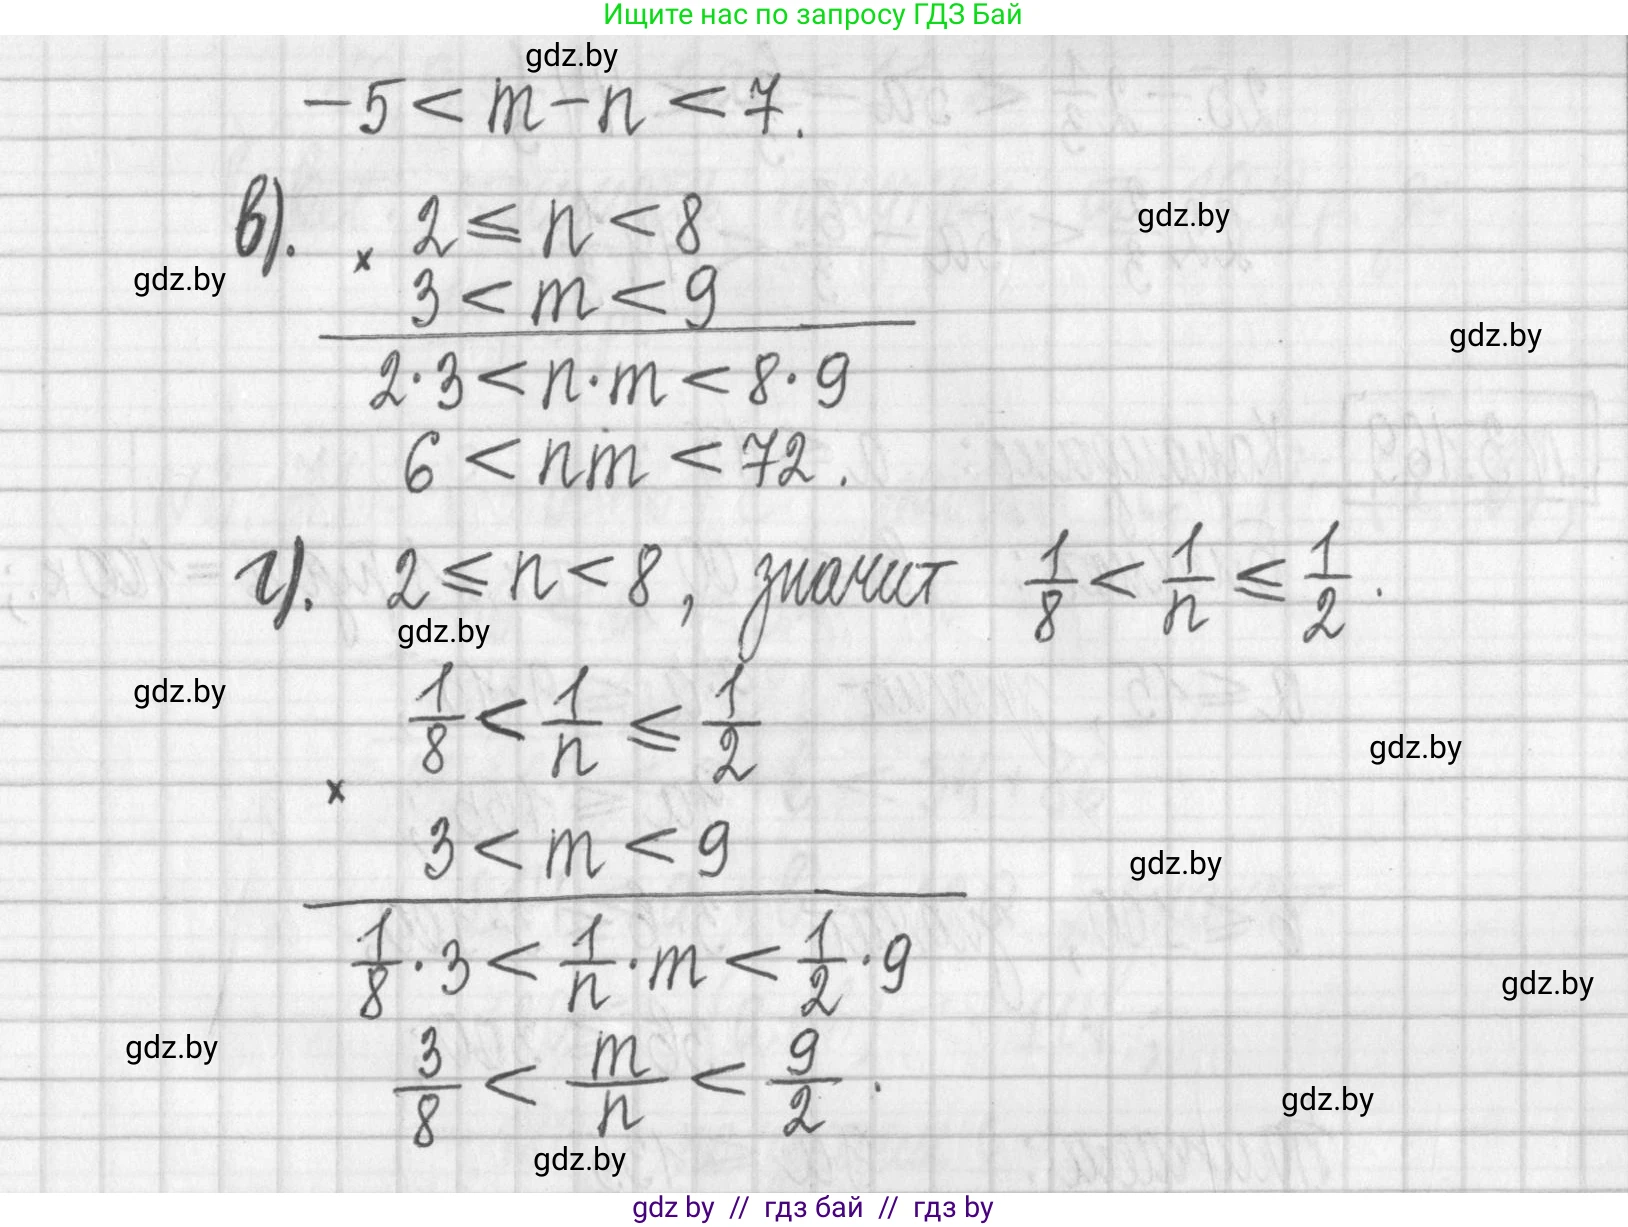 Ищите нас по запросу ГДЗ Бай
gdz.by
-5 < m - n < 7.
в). 2 ≤ n < 8
gdz.by
× 
gdz.by
3 < m < 9
gdz.by
2·3 < n·m < 8·9
6 < nm < 72.
г). 2 ≤ n < 8, значит 1/8 < 1/n ≤ 1/2.
gdz.by
gdz.by
1/8 < 1/n ≤ 1/2
gdz.by
×
3 < m < 9
gdz.by
1/8 · 3 < 1/n · m < 1/2 · 9
gdz.by
gdz.by
3/8 < m/n < 9/2.
gdz.by
gdz.by
gdz by // гдз бай // гдз by